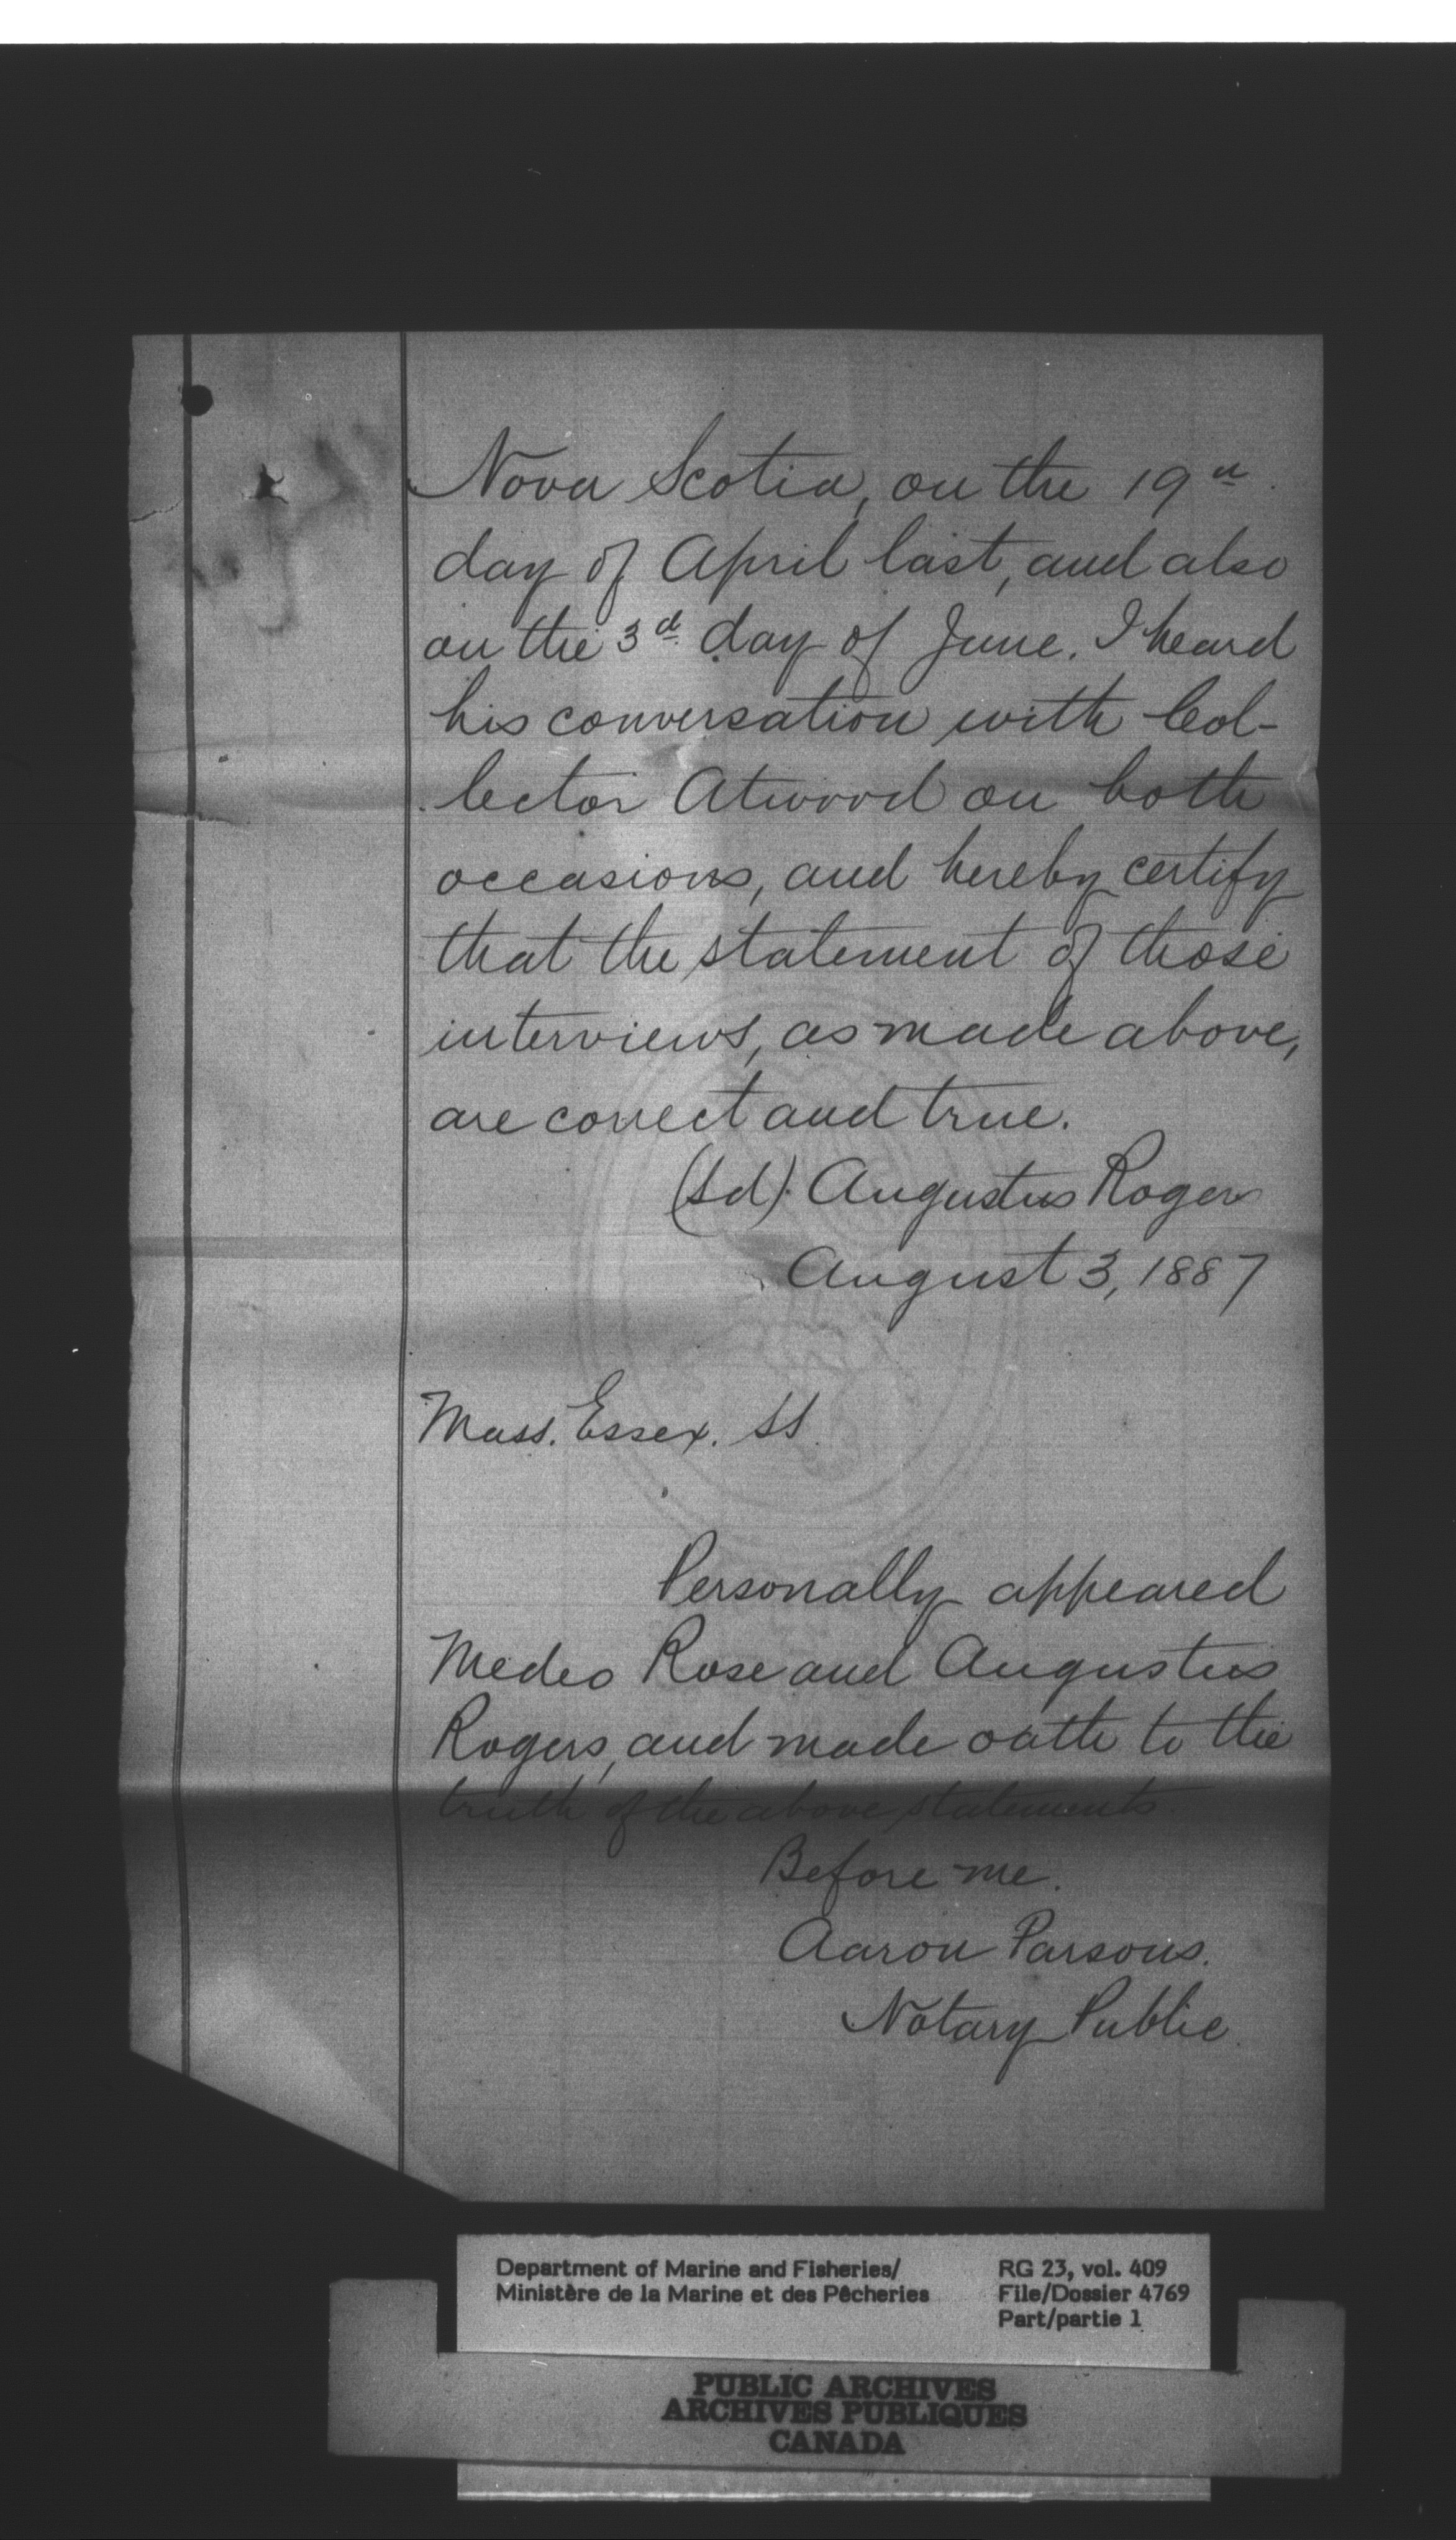 Nova Scotia, on the 19th
day of April last, and also
on the 3d day of June. I heard
his conversation with Col-
lector Atwood on both
occasions, and hereby certify
that the statement of those
interviews, as made above,
are correct and true.
(Sd). Augustus Rogers
August 3, 1887
Mass. Essex. SS.
Personally appeared
Medeo Rose and Augustus
Rogers, and made oath to the
truth of the above statements.
Before me.
Aaron Parsons.
Notary Public
Department of Marine and Fisheries/
Ministère de la Marine et des Pêcheries
RG 23, vol. 409
File/Dossier 4769
Part/partie 1
PUBLIC ARCHIVES
ARCHIVES PUBLIQUES
CANADA